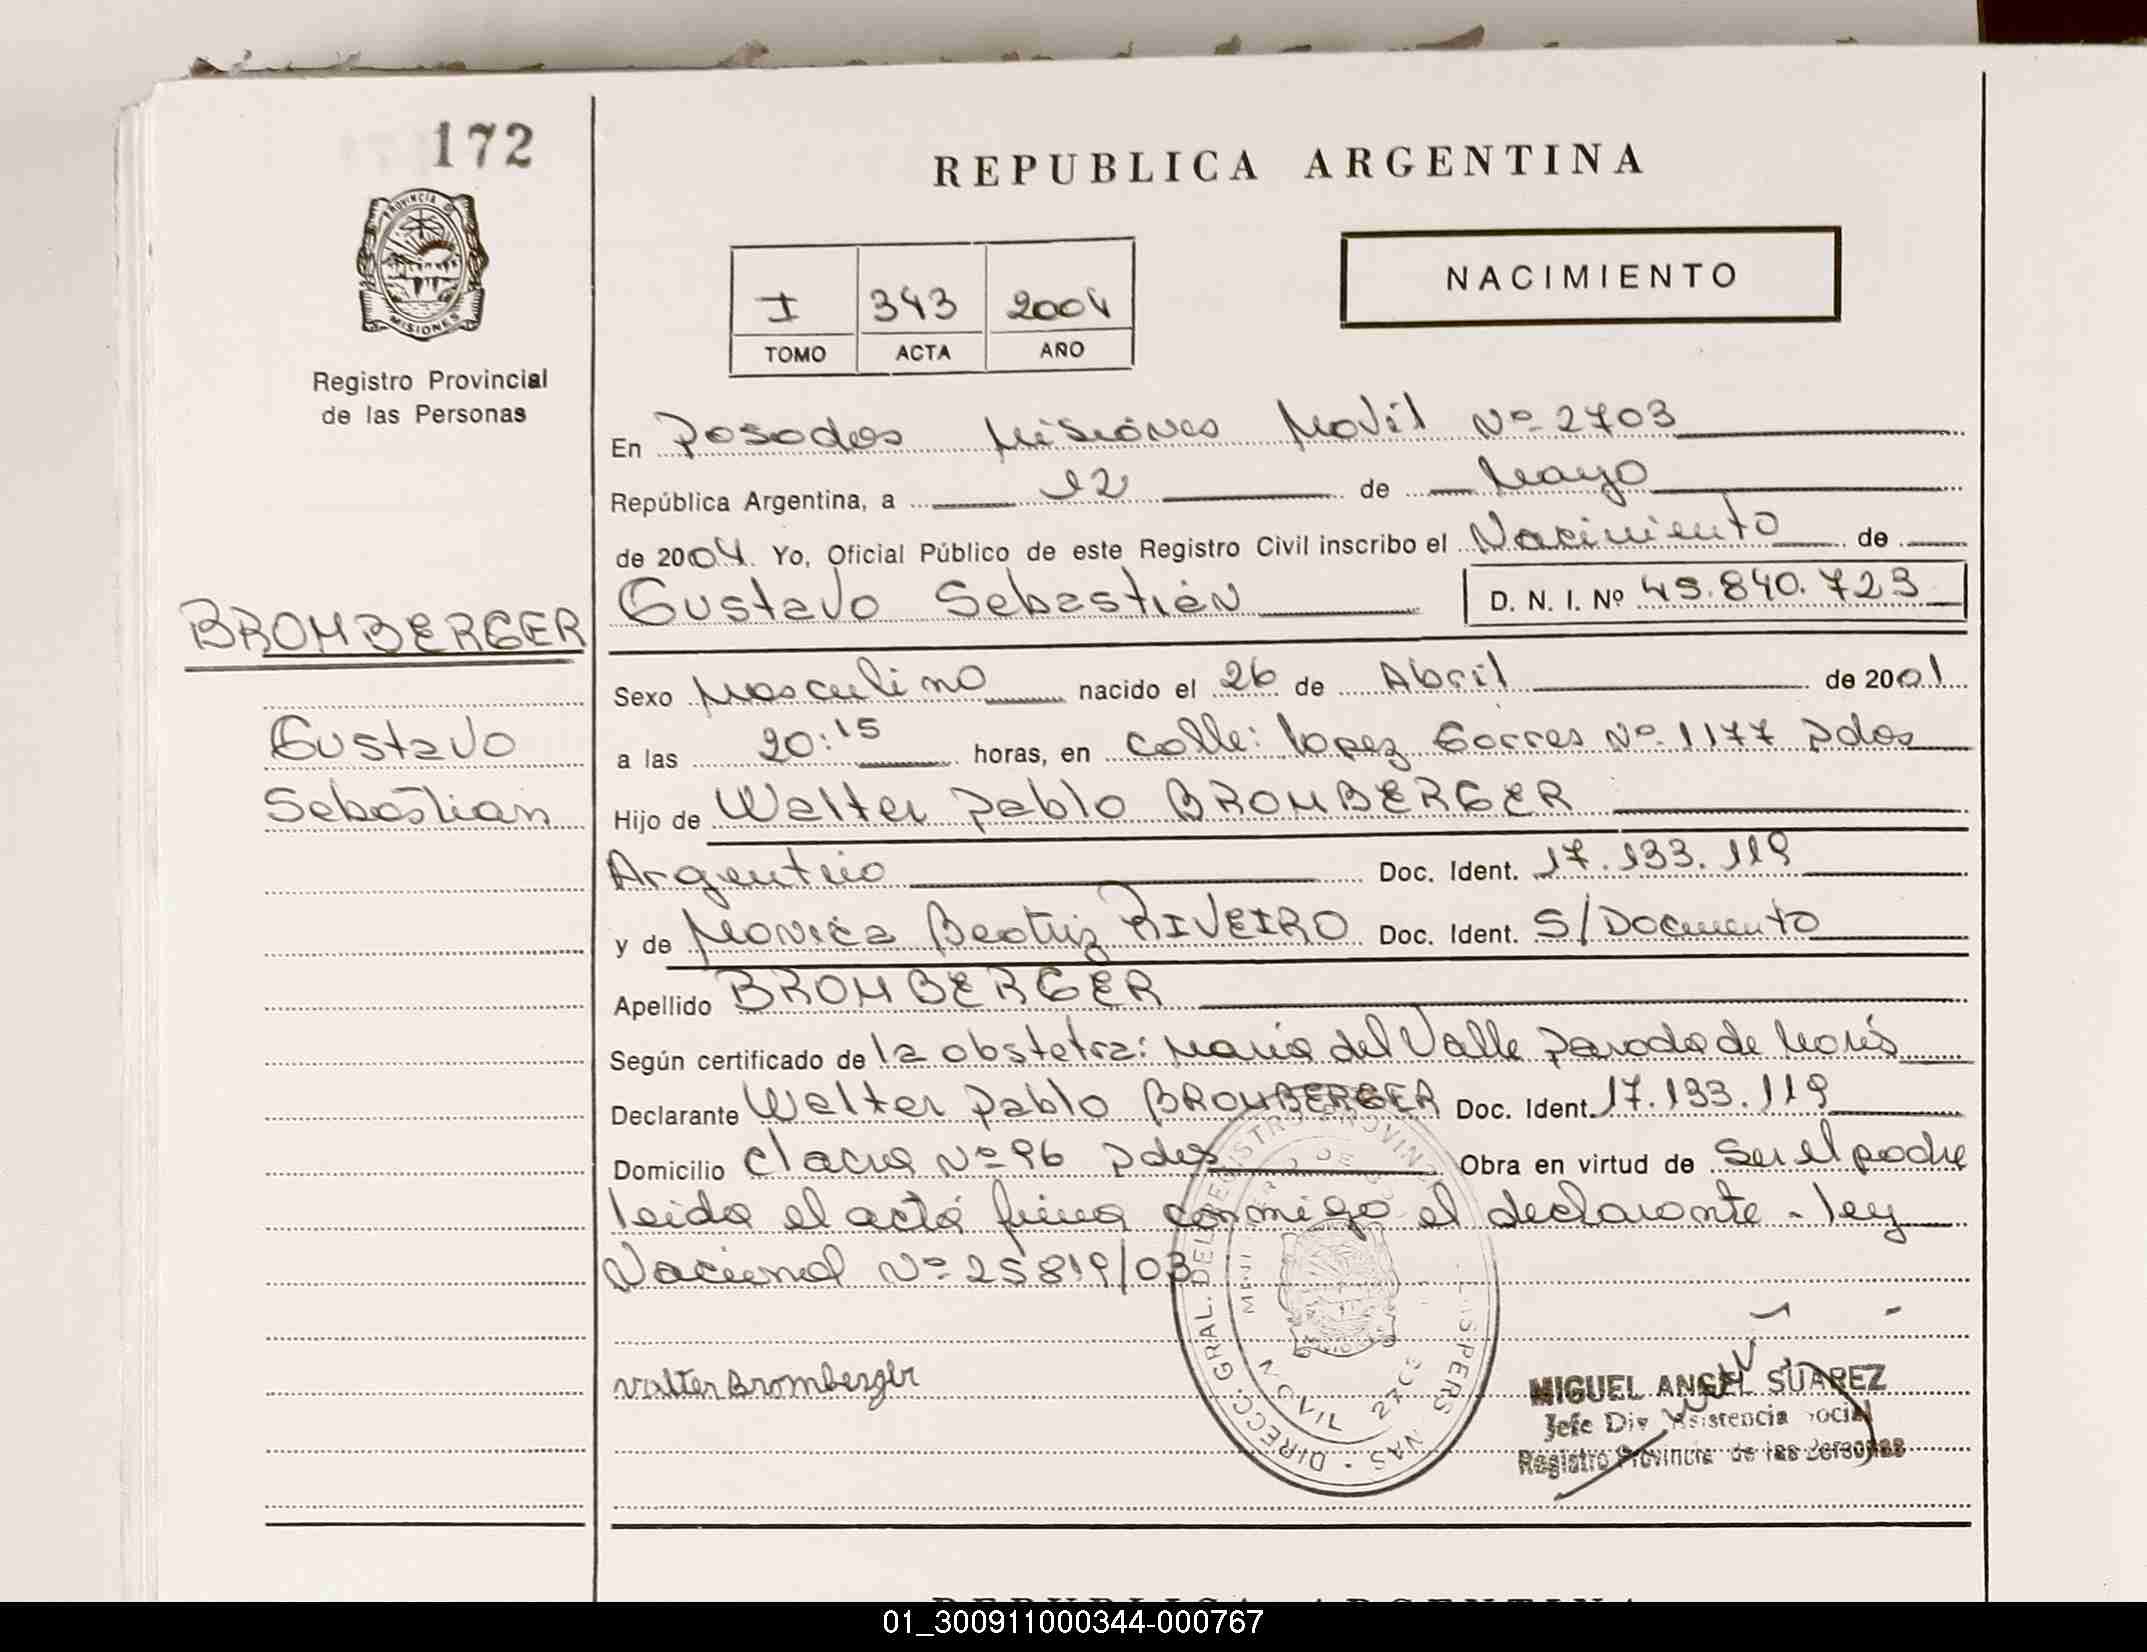 172
REPUBLICA ARGENTINA
PROVINCIA DE
MISIONES
Registro Provincial
de las Personas
I 343 2004
TOMO ACTA AÑO
NACIMIENTO
En Posadas Misiones Movil Nº 2703
República Argentina, a 12 de Mayo
de 2004. Yo, Oficial Público de este Registro Civil inscribo el Nacimiento de
BROMBERGER
Gustavo Sebastián D. N. I. Nº 45.840.723
Gustavo
Sebastian
Sexo Masculino nacido el 26 de Abril de 2001
a las 20:15 horas, en Calle: Lopez Torres Nº 1177 Pdas
Hijo de Walter Pablo BROMBERGER
Argentino Doc. Ident. 17.133.119
y de Monica Beatriz RIVEIRO Doc. Ident. S/Documento
Apellido BROMBERGER
Según certificado de la obstetra: Maria del Valle Parada de
Declarante Walter Pablo BROMBERGER Doc. Ident. 17.133.119
Domicilio Nº 96 Pdas Obra en virtud de Ser el padre
leida el acta firma conmigo el declarante - ley
Nacional Nº 25819/03
Walter Bromberger
DIRECC. GRAL. DEL REGISTRO PROVINC
MOVIL 2703
MIGUEL ANGEL SUAREZ
Jefe Div Asistencia Social
Registro Provincia de las Personas
REPUBLICA ARGENTINA
01_300911000344-000767